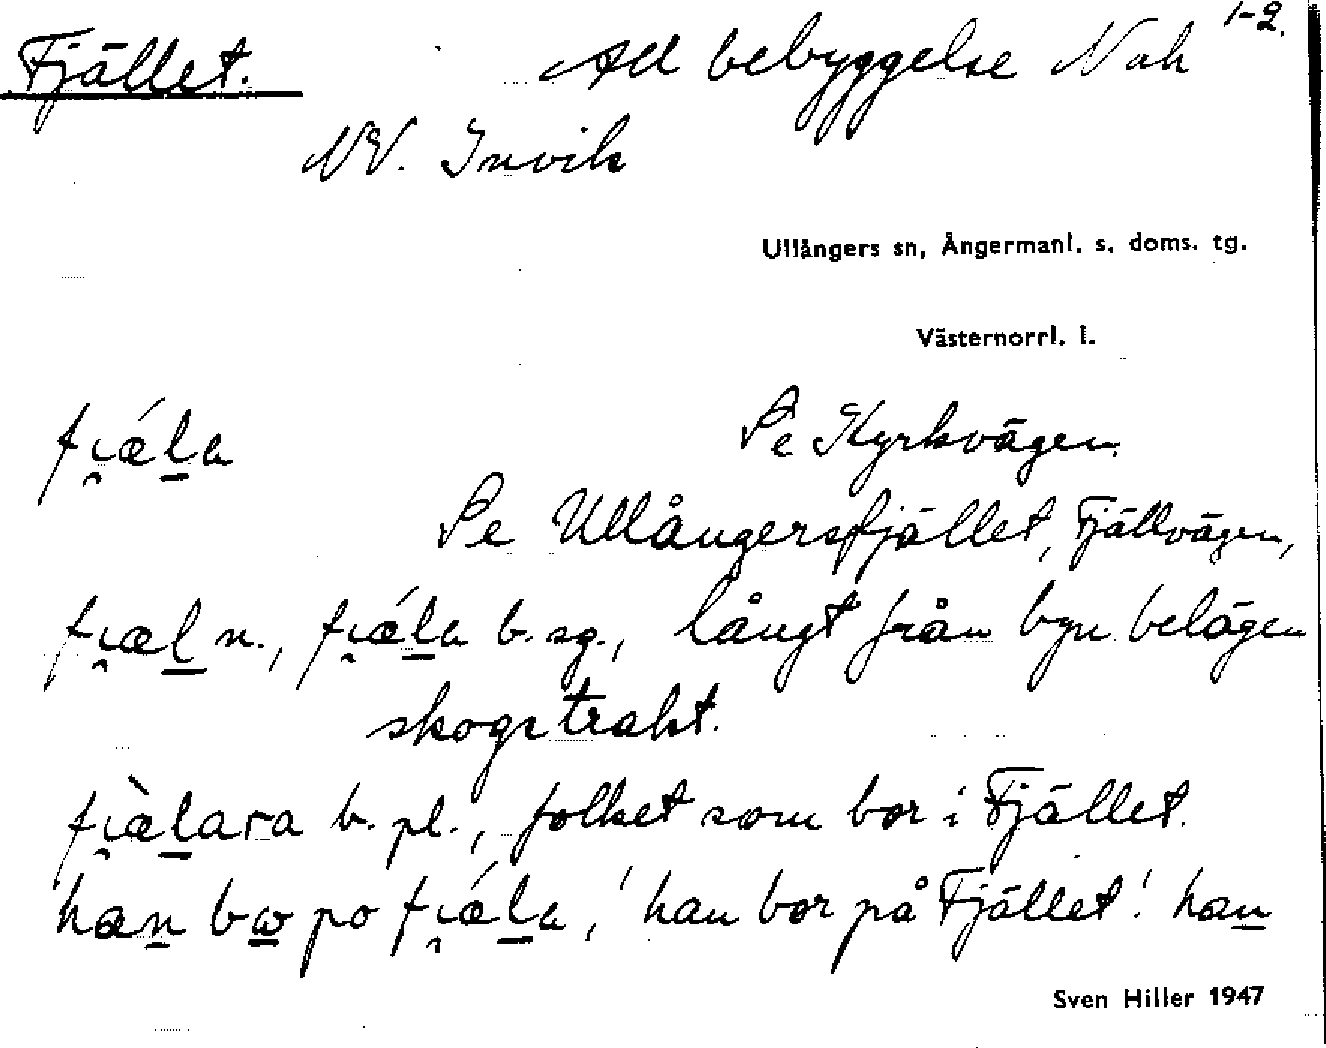 Fjället. Ad bebyggelse Nah 1-2.
NV. Invik
Ullångers sn, Ångermanl. s. doms. tg.
Västernorrl. l.
fi̯ǽl̲a Se Kyrkvägen.
Se Ullångersfjället, Fjällvägen,
fi̯æl̲ n., fi̯ǽl̲a b. sg., långt från byn belägen
skogstrakt.
fi̯æ̀l̲ara b. pl., folket som bor i Fjället.
han̲ bω̲ po fi̯ǽl̲a, 'han bor på Fjället'. han̲
Sven Hiller 1947